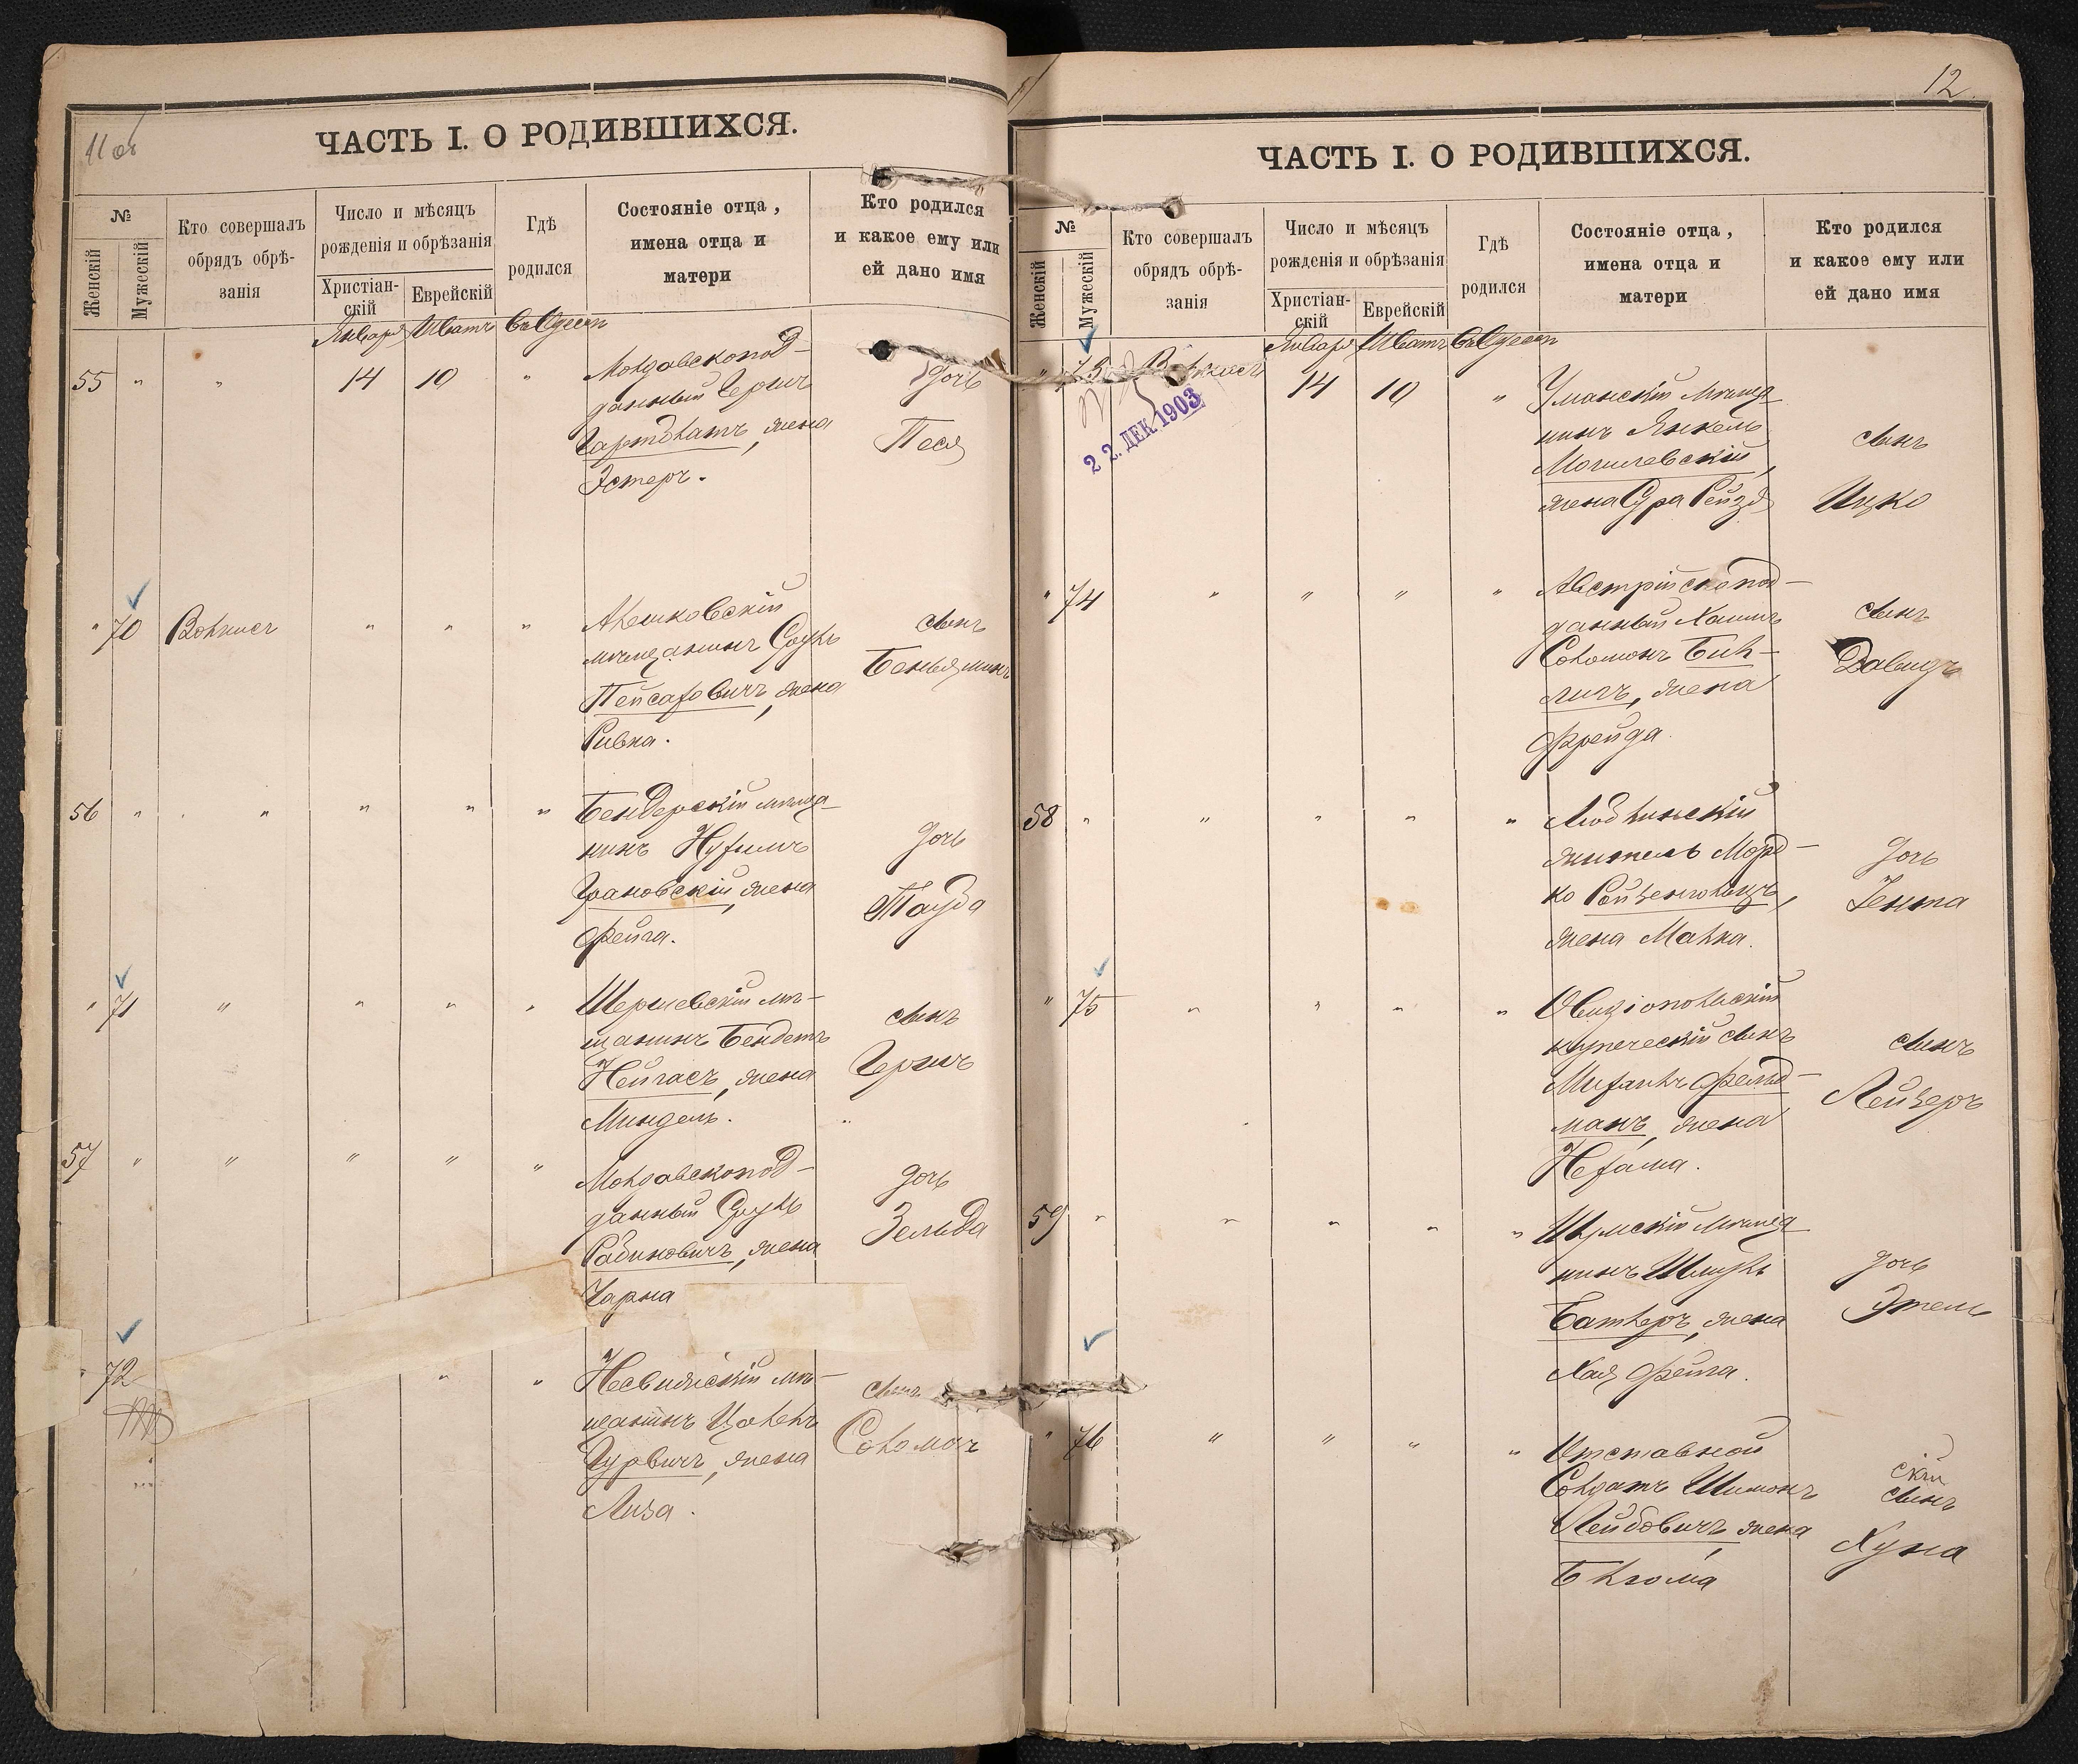 11 об
ЧАСТЬ I. О РОДИВШИХСЯ.
№
Женскій
Мужескій
Кто совершалъ
обрядъ обрѣ-
занія
Число и мѣсяцъ
рожденія и обрѣзанія
Христіан-
скій
Еврейскій
Гдѣ
родился
Состояніе отца,
имена отца и
матери
Кто родился
и какое ему или
ей дано имя
Января Шватъ въ Одессѣ
55 " " 14 19 "
Молдавскопод-
данный Гершъ
жена
Эстеръ.
дочь
Песя
" 70 " " "
мѣщанинъ Сруль
Пейсаховичъ, жена
Ривка.
сынъ
Беньяминъ
56 " " " " "
Бендерскій мѣща-
нинъ Нухимъ
Грановскій, жена
Фейга.
дочь
Тауба
" 71 " " " "
Шершевскій мѣ-
щанинъ Бендетъ
Нейгасъ, жена
Миндель.
сынъ
Гершъ
57 " " " " "
Молдавскопод-
данный Сруль
Рабиновичъ, жена
Чарна
дочь
Зельда
" 72 " "
Несвижскій мѣ-
щанинъ
Гурвичъ, жена
Лиза.
сынъ
Соломонъ
12
ЧАСТЬ I. О РОДИВШИХСЯ.
№
Женскій
Мужескій
Кто совершалъ
обрядъ обрѣ-
занія
Число и мѣсяцъ
рожденія и обрѣзанія
Христіан-
скій
Еврейскій
Гдѣ
родился
Состояніе отца,
имена отца и
матери
Кто родился
и какое ему или
ей дано имя
Января Шватъ въ Одессѣ
" 73 14 19 "
22. ДЕК 1903
Уманскій мѣща-
нинъ Янкель
Могилевскій,
жена Сура Рейзя
сынъ
Ицко
" 74 " " " "
Австрійскопод-
данный Хаимъ
Соломонъ Бил-
личъ, жена
Фрейда.
сынъ
Давидъ
58 " " " " "
житель Морд-
ко
жена Малка.
дочь
Гента
" 75 " " " "
Овидіопольскій
купеческій сынъ
Михаилъ Фельд-
манъ, жена
Нехама.
сынъ
Лейзеръ
59 " " " " "
Шумскій мѣща-
нинъ Шмуль
Батлеръ, жена
Хая Фейга.
дочь
Этель
" 76 " " " "
Отставной
Солдатъ Шимонъ
Лейбовичъ, жена
Блюма
сынъ
Хуна